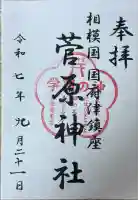 奉拝
相模国 国府津鎮座
菅原神社
令和七年九月二十一日